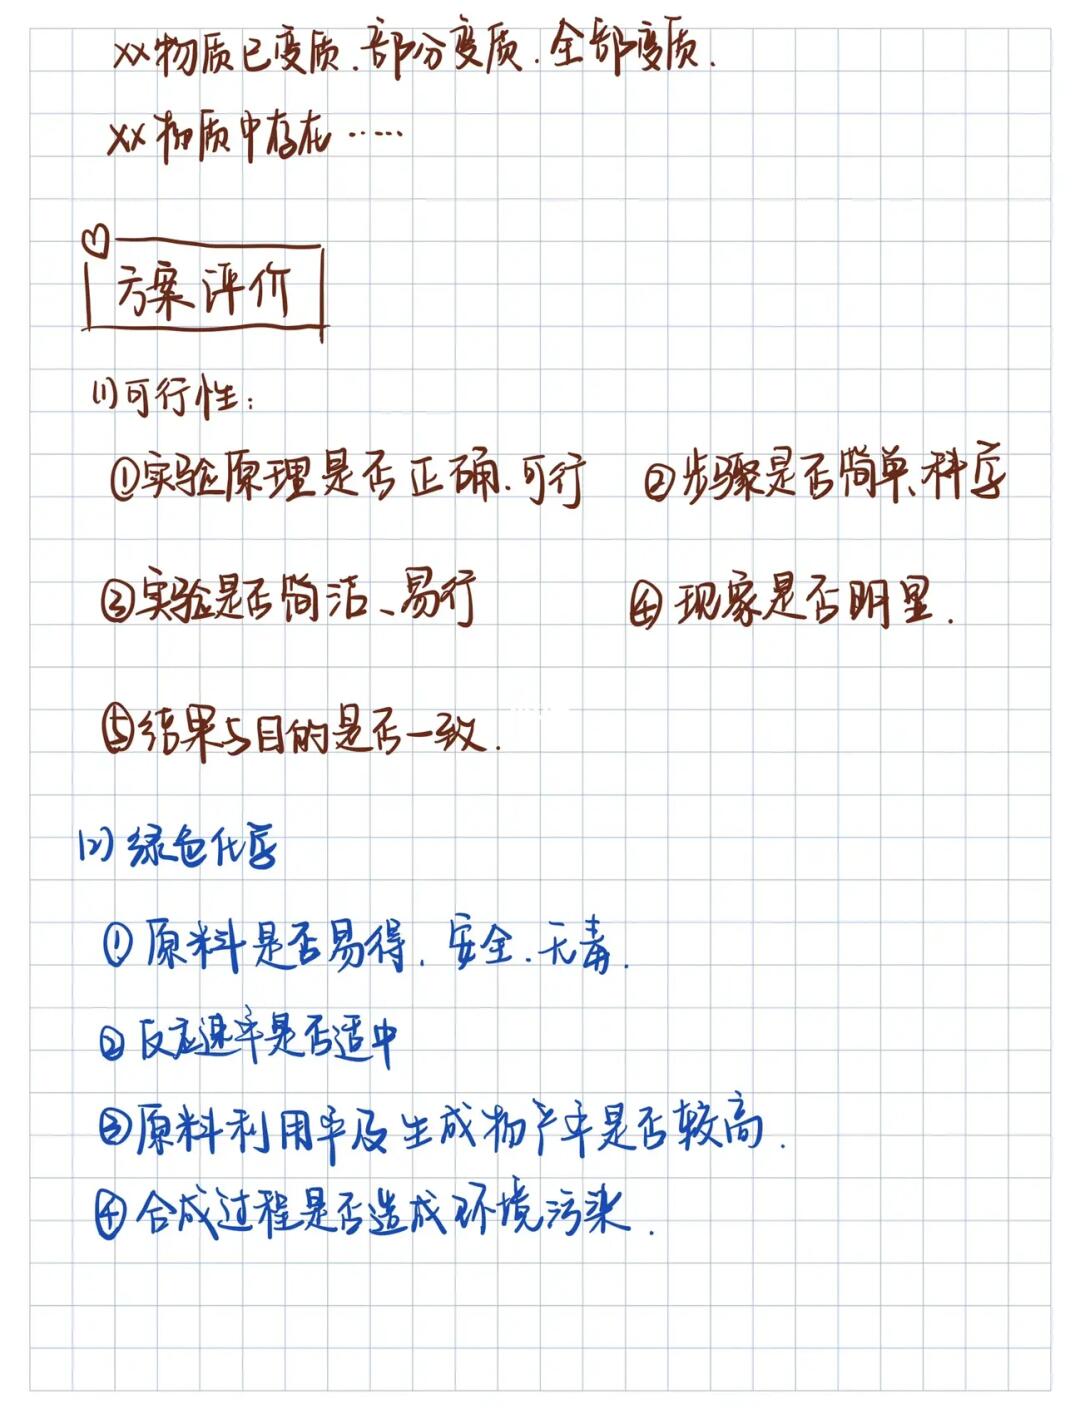 xx物质已变质.部分变质.全部变质.
xx物质中存在……
方案评价
(1)可行性:
①实验原理是否正确.可行 ②步骤是否简单、科学
③实验是否简洁、易行 ④现象是否明显.
⑤结果与目的是否一致.
(2)绿色化学
①原料是否易得.安全.无毒.
②反应速率是否适中
③原料利用率及生成物产率是否较高.
④合成过程是否造成环境污染.